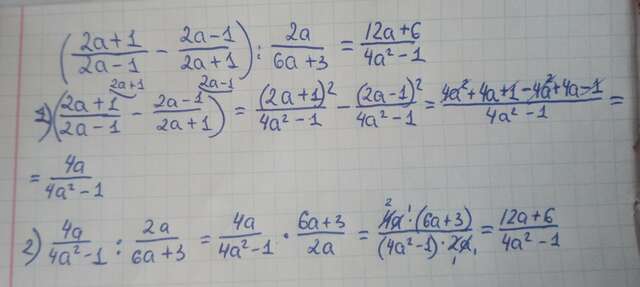 (2a+1/2a-1 - 2a-1/2a+1) : 2a/6a+3 = 12a+6/4a²-1
1) (2a+1/2a-1 (2a+1) - 2a-1/2a+1 (2a-1)) = (2a+1)²/4a²-1 - (2a-1)²/4a²-1 = 4a²+4a+1-4a²+4a-1/4a²-1 =
= 4a/4a²-1
2) 4a/4a²-1 : 2a/6a+3 = 4a/4a²-1 · 6a+3/2a = 4a·(6a+3)/(4a²-1)·2a = 12a+6/4a²-1